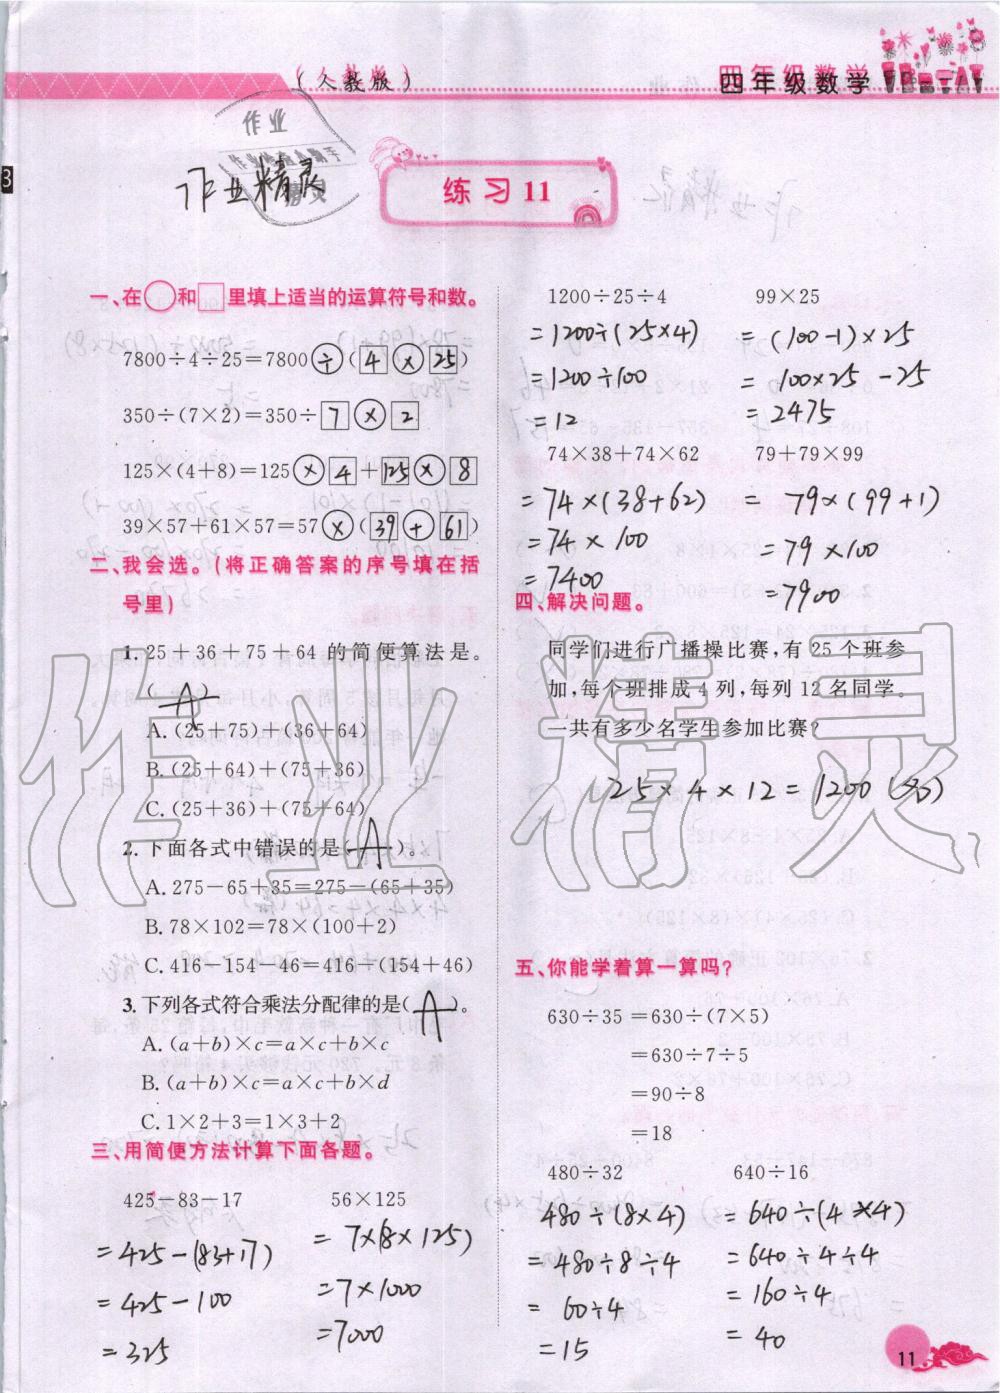 (人教版)
四年级数学
作业
作业精灵
练习11
一、在○和□里填上适当的运算符号和数。
7800÷4÷25=7800÷(4×25)
350÷(7×2)=350÷7×2
125×(4+8)=125×4+125×8
39×57+61×57=57×(39+61)
二、我会选。(将正确答案的序号填在括
号里)
1. 25+36+75+64 的简便算法是。
(A)
A. (25+75)+(36+64)
B. (25+64)+(75+36)
C. (25+36)+(75+64)
2. 下面各式中错误的是(A)。
A. 275-65+35=275-(65+35)
B. 78×102=78×(100+2)
C. 416-154-46=416-(154+46)
3. 下列各式符合乘法分配律的是(A)。
A. (a+b)×c=a×c+b×c
B. (a+b)×c=a×c+b×d
C. 1×2+3=1×3+2
三、用简便方法计算下面各题。
425-83-17 56×125
=425-(83+17) =7×(8×125)
=425-100 =7×1000
=325 =7000
1200÷25÷4 99×25
=1200÷(25×4) =(100-1)×25
=1200÷100 =100×25-25
=12 =2475
74×38+74×62 79+79×99
=74×(38+62) =79×(99+1)
=74×100 =79×100
=7400 =7900
四、解决问题。
同学们进行广播操比赛,有 25 个班参
加,每个班排成 4 列,每列 12 名同学。
一共有多少名学生参加比赛?
25×4×12=1200(名)
五、你能学着算一算吗?
630÷35=630÷(7×5)
=630÷7÷5
=90÷8
=18
480÷32 640÷16
480÷(8×4) =640÷(4×4)
=480÷8÷4 =640÷4÷4
=60÷4 =160÷4
=15 =40
11
作业精灵